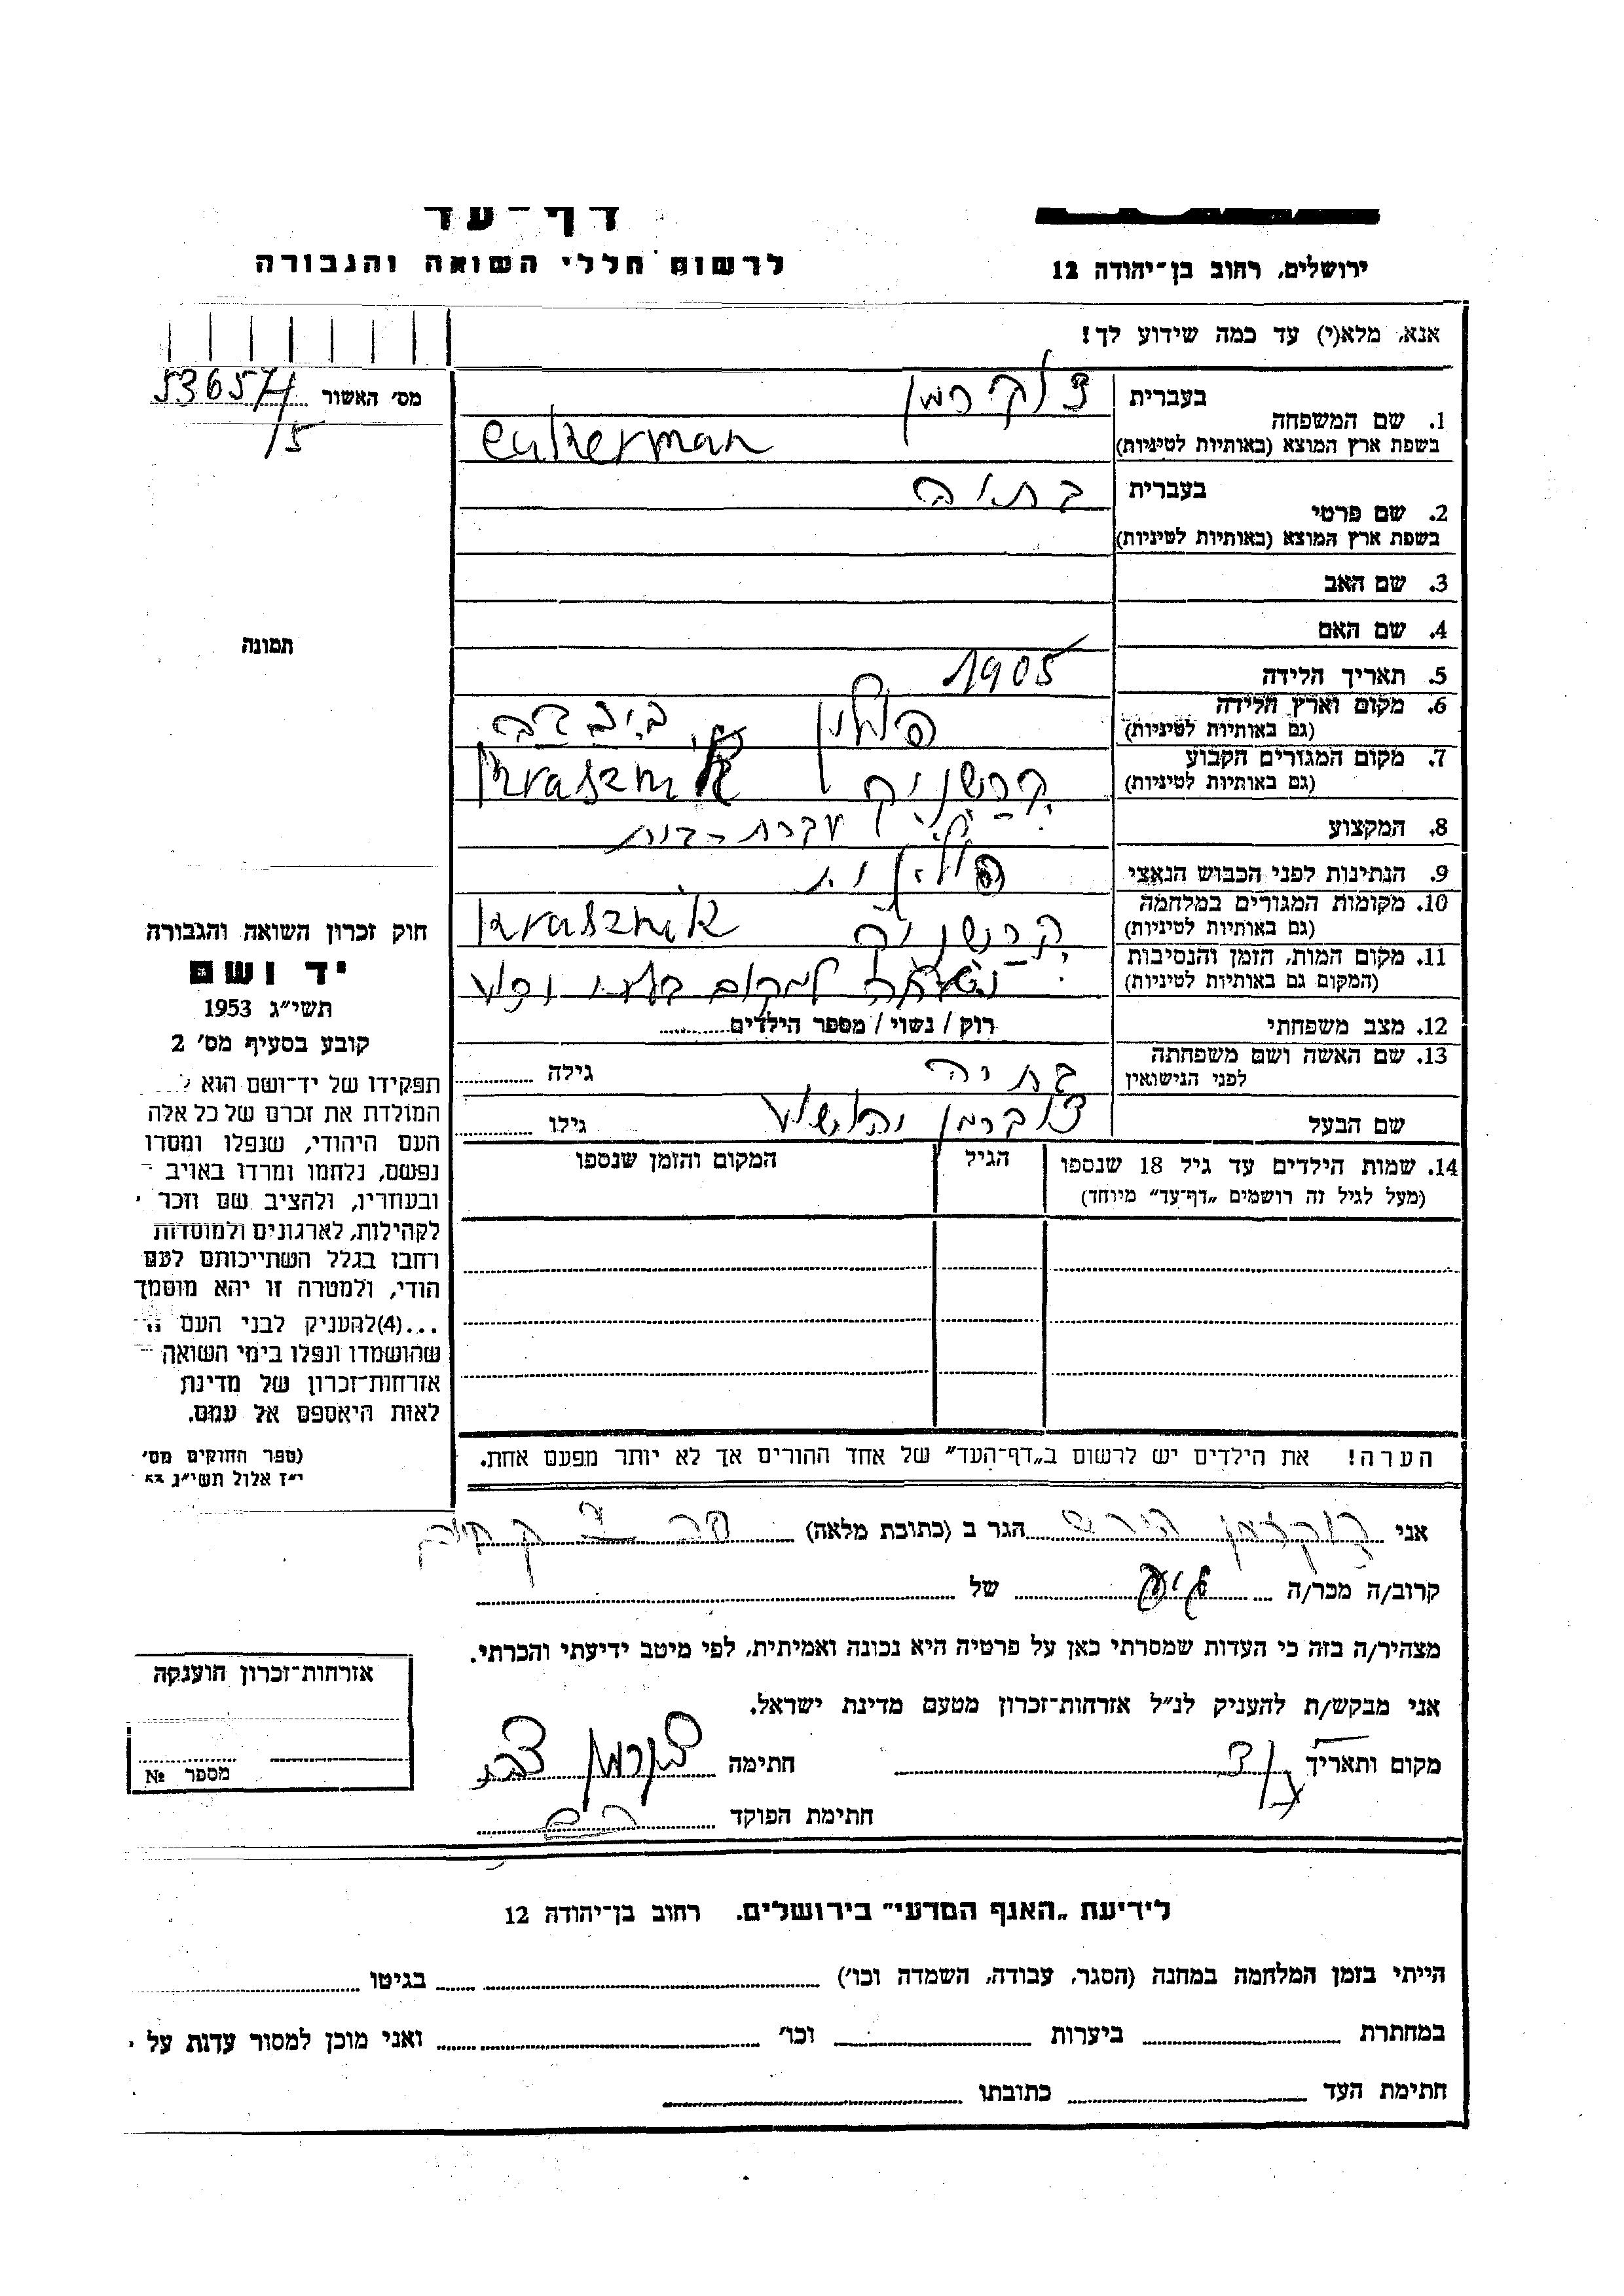 דף-עד
לרשום חללי השואה והגבורה
ירושלים, רחוב בן-יהודה 12
אנא, מלא(י) עד כמה שידוע לך!
מס׳ האשור 53657/5
1. שם המשפחה בעברית צוקירמן
בשפת ארץ המוצא (באותיות לטיניות) cukerman
2. שם פרטי בעברית בתיה
בשפת ארץ המוצא (באותיות לטיניות)
3. שם האב
4. שם האם
5. תאריך הלידה 1905
6. מקום וארץ הלידה פולין
(גם באותיות לטיניות)
7. מקום המגורים הקבוע קרשניק Krasznik
(גם באותיות לטיניות)
8. המקצוע עקרת-בית
9. הנתינות לפני הכבוש הנאצי פולנית
10. מקומות המגורים במלחמה קרשניק Krasznik
(גם באותיות לטיניות)
11. מקום המות, הזמן והנסיבות למקום בלתי ידוע
(המקום גם באותיות לטיניות)
12. מצב משפחתי רוק / נשוי / מספר הילדים
13. שם האשה ושם משפחתה בתיה גילה
לפני הנישואין
שם הבעל צוקרמן יהושע גילו
14. שמות הילדים עד גיל 18 שנספו הגיל המקום והזמן שנספו
(מעל לגיל זה רושמים „דף-עד״ מיוחד)
תמונה
חוק זכרון השואה והגבורה
יד ושם
תשי״ג 1953
קובע בסעיף מס׳ 2
תפקידו של יד-ושם הוא
המולדת את זכרם של כל אלה
העם היהודי, שנפלו ומסרו
נפשם, נלחמו ומרדו באויב
ובעוזריו, ולהציב שם וזכר
לקהילות, לארגונים ולמוסדות
רחבו בגלל השתייכותם לעם
הודי, ולמטרה זו יהא מוסמך
...(4)להעניק לבני העם
שהושמדו ונפלו בימי השואה
אזרחות-זכרון של מדינת
לאות היאספם אל עמם.
(ספר החוקים מס׳
י״ז אלול תשי״ג
הערה! את הילדים יש לרשום ב„דף-העד״ של אחד ההורים אך לא יותר מפעם אחת.
אני צוקרמן הגר ב (כתובת מלאה)
קרוב/ה מכר/ה של
מצהיר/ה בזה כי העדות שמסרתי כאן על פרטיה היא נכונה ואמיתית, לפי מיטב ידיעתי והכרתי.
אני מבקש/ת להעניק לנ״ל אזרחות-זכרון מטעם מדינת ישראל.
מקום ותאריך חתימה צוקרמן
חתימת הפוקד
אזרחות-זכרון הוענקה
מספר №
לידיעת „האגף המדעי״ בירושלים. רחוב בן-יהודה 12
הייתי בזמן המלחמה במחנה (הסגר, עבודה, השמדה וכו׳) בגיטו
במחתרת ביערות וכו׳ ואני מוכן למסור עדות על
חתימת העד כתובתו